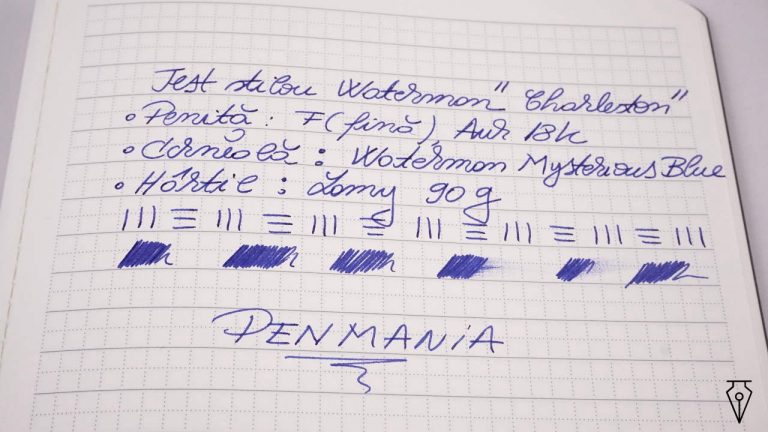 Test stilou Waterman "Charleston"
• Peniță: F (fină), Aur 18k
• Cerneală: Waterman Mysterious Blue
• Hârtie: Lamy 90 g
PENMANiA